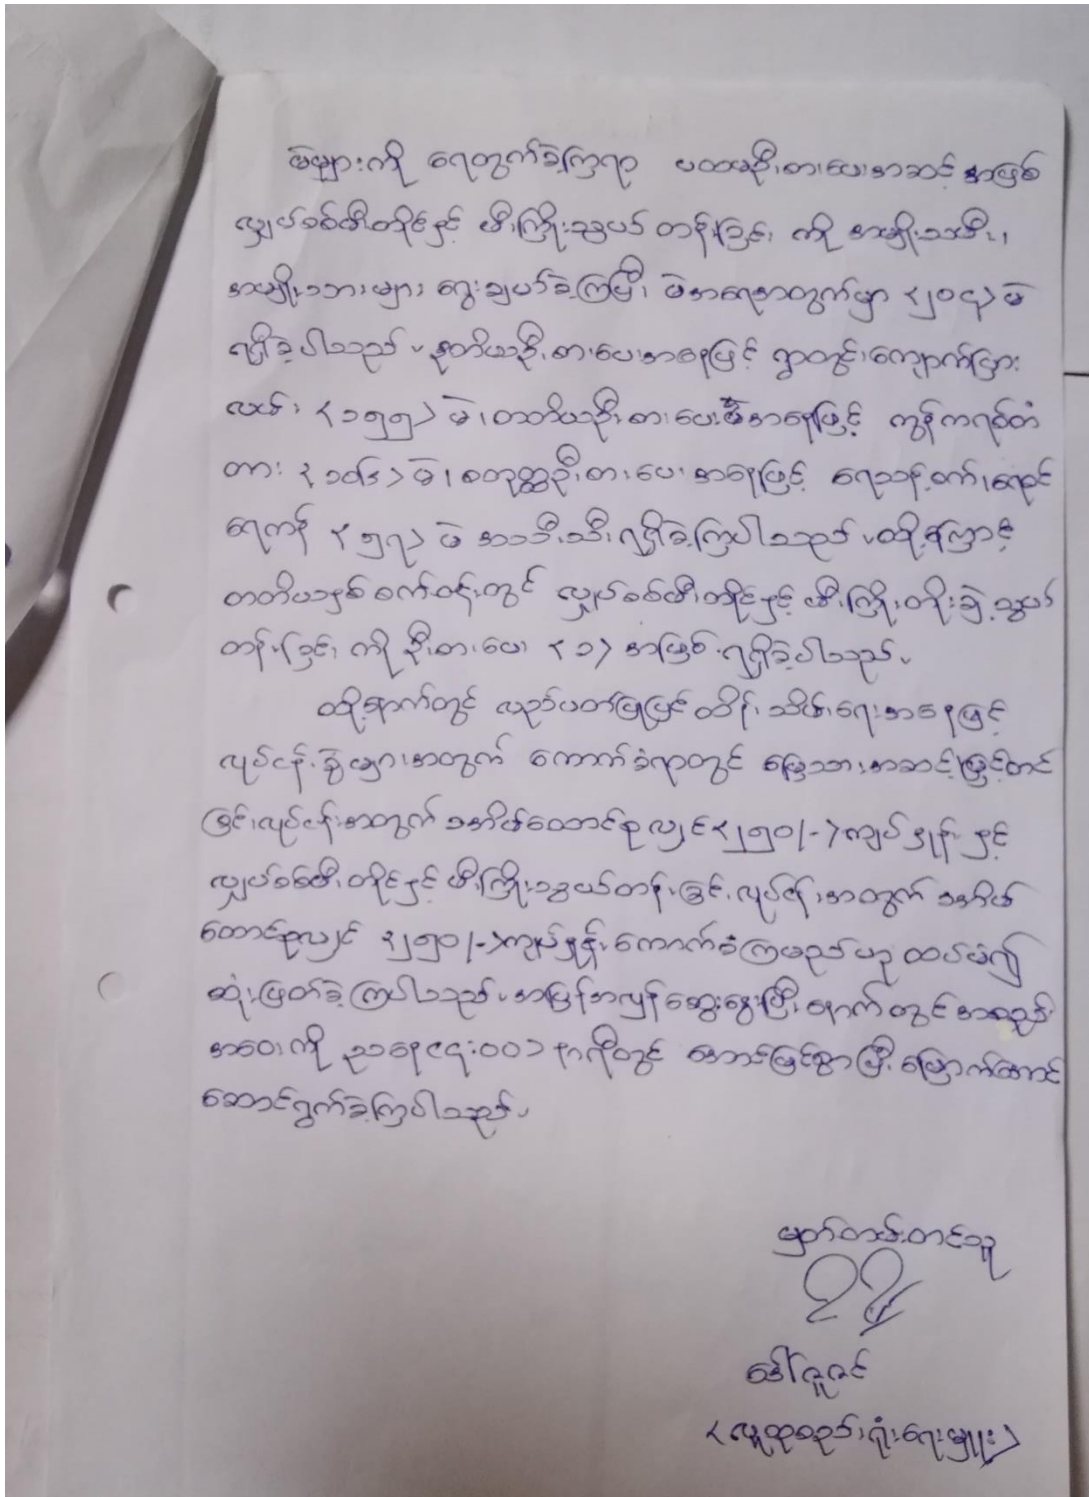 မဲများကို ရေတွက်ခဲ့ကြရာ ပထမဦးစားပေးအဆင့် အဖြစ်
လျှပ်စစ်မီးတိုင်နှင့် မီးကြိုးသွယ် တန်းခြင်း ကို အမျိုးသမီး၊
အမျိုးသားများ ရွေးချယ်ခဲ့ကြပြီး မဲအရေအတွက်မှာ <၂၀၄> မဲ
ရရှိခဲ့ပါသည်။ ဒုတိယဦးစားပေးအနေဖြင့် ရွာတွင်းကျောက်ပြား
လမ်း <၁၅၅> မဲ၊ တတိယဦးစားပေးအနေဖြင့် ကွန်ကရစ်တံ
တား <၁၀၆> မဲ၊ စတုတ္ထဦးစားပေး အနေဖြင့် ရေသန့်စက်၊ရေ
ရေကန် <၅၇> မဲ အသီးသီး ရရှိခဲ့ကြပါသည်။ ထို့ကြောင့်
တတိယနှစ်စက်ဝန်းတွင် လျှပ်စစ်မီးတိုင်နှင့် မီးကြိုးတိုးချဲ့သွယ်
တန်းခြင်း ကို ဦးစားပေး <၁> အဖြစ် ရရှိခဲ့ပါသည်။
ထို့နောက်တွင် လည်ပတ်ပြုပြင်ထိန်းသိမ်းရေးအနေဖြင့်
လုပ်ငန်းခွဲများအတွက် ကောက်ခံရာတွင် မြေသားအဆင့်မြှင့်တင်
ခြင်းလုပ်ငန်းအတွက် ၁အိမ်ထောင်စုလျှင် <၂၅၀/-> ကျပ်နှုန်း နှင့်
လျှပ်စစ်မီးတိုင်နှင့် မီးကြိုးသွယ်တန်းခြင်းလုပ်ငန်းအတွက် ၁အိမ်
ထောင်စုလျှင် <၂၅၀/-> ကျပ်နှုန်း ကောက်ခံကြမည်ဟု ထပ်မံ၍
ဆုံးဖြတ်ခဲ့ကြပါသည်။ အပြန်အလှန်ဆွေးနွေးပြီးနောက်တွင် အစည်း
အဝေးကို ညနေ <၄:၀၀> နာရီတွင် အောင်မြင်စွာပြီးမြောက်အောင်
ဆောင်ရွက်ခဲ့ကြပါသည်။
မှတ်တမ်းတင်သူ
ဒေါ်ဇူဇင်
<လူထုစည်းရုံးရေးမှူး>